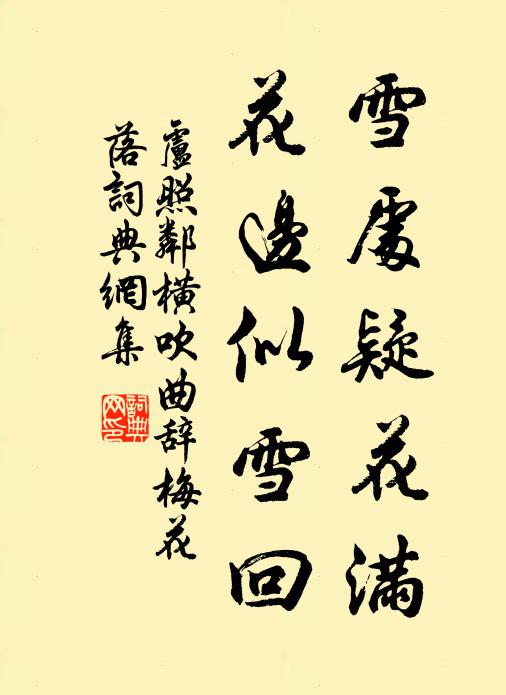 雪處疑花滿
花邊似雪回
盧照鄰橫吹曲辭梅花
落詞典網集
詞典
网印